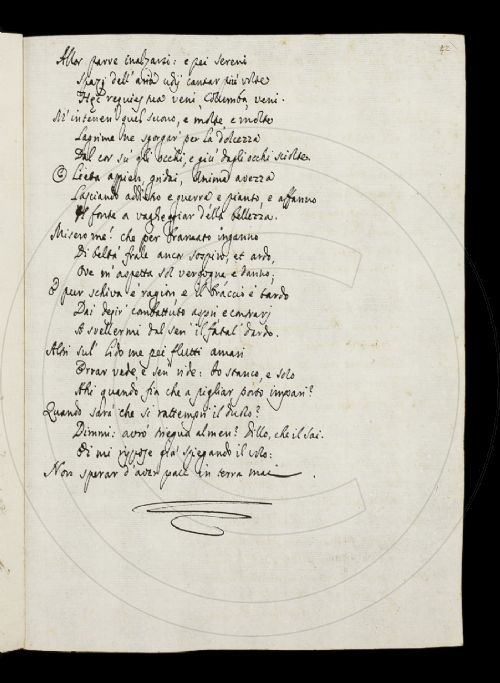 42
Allor parve inalzarsi: e pei sereni
Spazj dell'aria udij cantar più volte
requies tua veni, Columba, veni.
M'intenerì quel suono, e molte e molte
Lagrime me sgorgar per la dolcezza
Dal cor sù gli occhi, e giù dagli occhi sciolte.
Lieta a pietà, gridai, Anima avezza
Lasciando addietro e guerra e pianto, e affanno
Il fonte a vagheggiar della bellezza.
Misero me! che per bramato inganno
Di beltà frale ancor sospiro, et ardo,
Ove m'aspetta sol vergogna e danno;
E pur schiva è ragion e il braccio è tardo
Dai desir' combattuto aspri e contrarj
A svellermi dal sen' il fatal dardo.
Altri sul' lido ma pei flutti amari
Errar vede e sen' ride: Io stanco, e solo
Ahi quando fia che a pigliar porto impari?
Quando sarà che si rattempri il duolo?
Dimmi: avrò tregua almen? Dillo, che il sai.
Ei mi rispose già spiegando il volo:
Non sperar d'aver pace in terra mai.